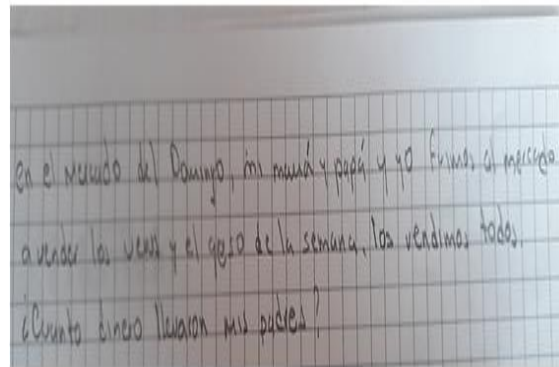 en el mercado del Domingo, mi mamá y papá y yo fuimos al mercado
a vender las y el qeso de la semana, los vendimos todos.
¿Cuanto dinero llevaron mis padres?